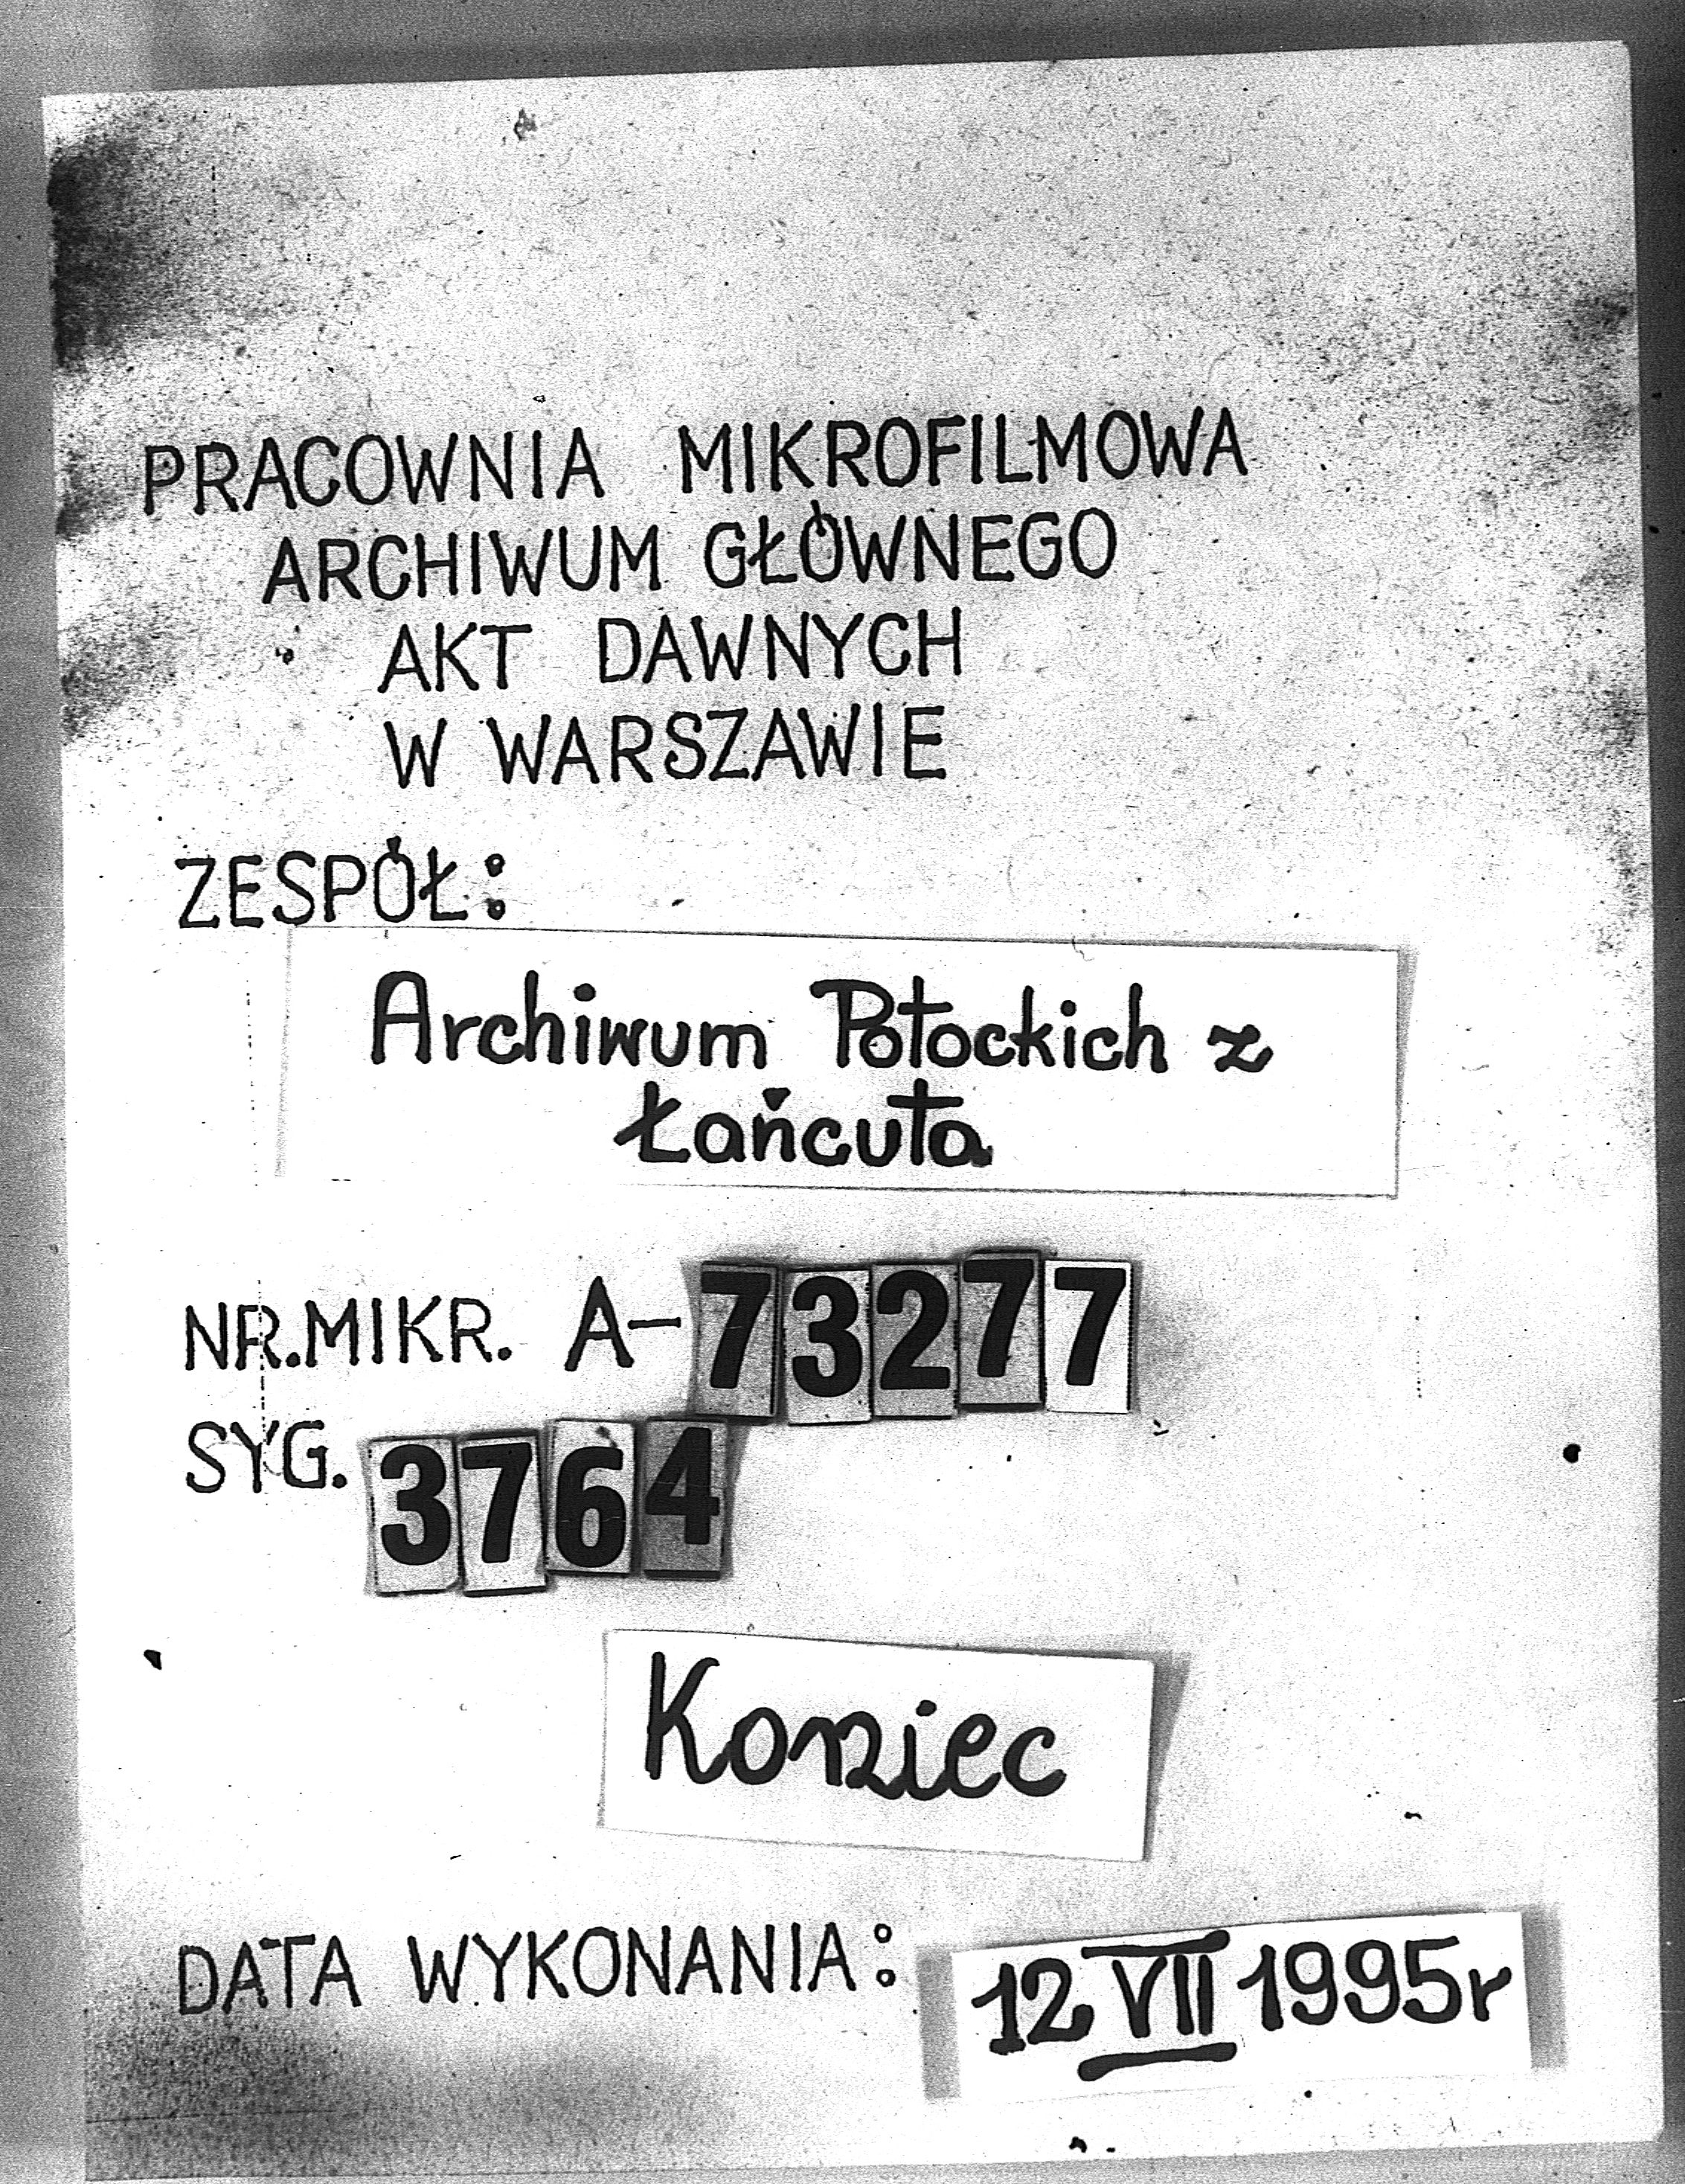 PRACOWNIA MIKROFILMOWA
ARCHIWUM GŁÓWNEGO
AKT DAWNYCH
W WARSZAWIE
ZESPÓŁ:
Archiwum Potockich z
Łańcuta
NR.MIKR. A-73277
SYG. 3764
Koniec
DATA WYKONANIA: 12 VII 1995r